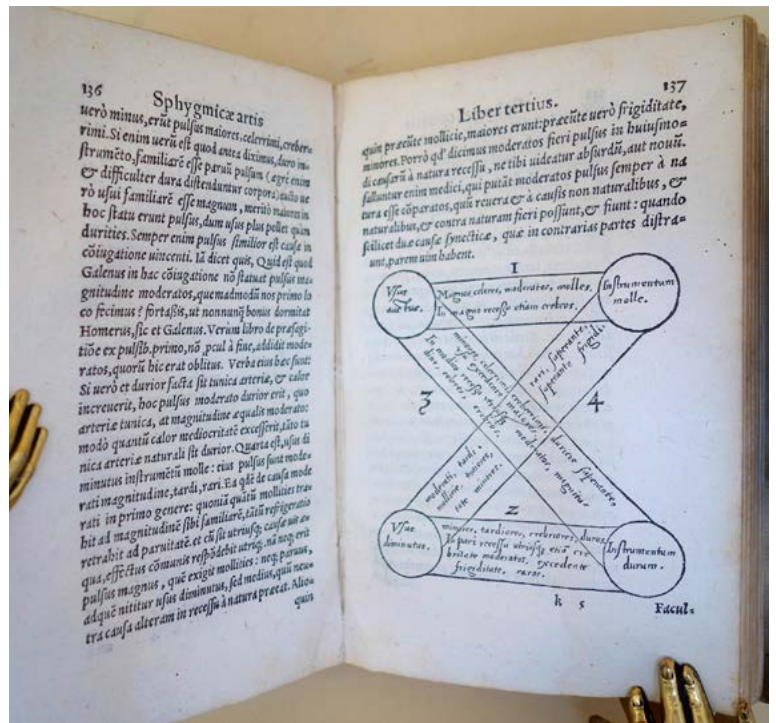 136
Sphygmicæ artis
uerò minus, erũt pulsus maiores, celerrimi, creber-
rimi. Si enim uerũ est quod antea diximus, duro in-
strumẽto, familiarẽ esse paruũ pulsum (ægrè enim
& difficulter dura distenduntur corpora) aucto ue
rò usui familiarẽ esse magnum, meritò maiores in
hoc statu erunt pulsus, dum usus plus pollet quàm
durities. Semper enim pulsus similior est causæ in
cõiugatione uincenti. Iã dicet quis, Quid est quod
Galenus in hac cõiugatione nõ statuat pulsus ma-
gnitudine moderatos, quemadmodũ nos primo lo
co fecimus? fortassis, ut nonnunq̃ bonus dormitat
Homerus, sic et Galenus. Verùm libro de præsagi-
tiõe ex pulsib. primo, nõ ꝓcul à fine, addidit mode-
ratos, quorũ hic erat oblitus. Verba eius hæc sunt:
Si uerò et durior facta sit tunica arteriæ, & calor
increuerit, hoc pulsus moderato durior erit, quo
arteriæ tunica, at magnitudine æqualis moderato:
modò quantũ calor mediocritatẽ excesserit, tãto tu
nica arteriæ naturali sit durior. Quarta est, usus di
minutus instrumẽtũ molle: eius pulsus sunt mode-
rati magnitudine, tardi, rari. Ea qdẽ de causa mode
rati in primo genere: quoniã quãtũ mollities tra-
hit ad magnitudinẽ sibi familiarẽ, tãtũ refrigeratio
retrahit ad paruitatẽ. et cũ sit utriusq; causæ uis æ-
qua, effectus cõmunis respõdebit utrũq;. nã neq; erit
pulsus magnus, quẽ exigit mollities: neq; paruus,
adquẽ nititur usus diminutus, sed medius, quũ neu-
tra causa alteram in recessu à natura præeat. Alio-
quin
Liber tertius.
137
quin præeũte mollicie, maiores erunt: præeũte uerò frigiditate,
minores. Porrò qđ dicimus moderatos fieri pulsus in huiusmo-
di causarũ à natura recessu, ne tibi uideatur absurdũ, aut nouũ.
falluntur enim medici, qui putãt moderatos pulsus semper à na
tura esse cõparatos, quũ reuera & à causis non naturalibus, &
naturalibus, & contra naturam fieri possunt, & fiunt: quando
scilicet duæ causæ synecticæ, quæ in contrarias partes distra-
unt, parem uim habent.
1
Vsus
auctus.
Magnos celeres, moderatos, molles.
In magno recessu etiam crebros.
Instrumentum
molle.
rari, superante,
superante frigidi-
3
4
moderati, tardi,
mollicie, maiores,
tate minores.
2
Vsus
diminutus.
minores, tardiores, crebriores, duros.
In pari recessu utriusq; etiã cre
britate moderatos, excedente
frigiditate, raros.
Instrumentum
durum.
k 5
Facul-